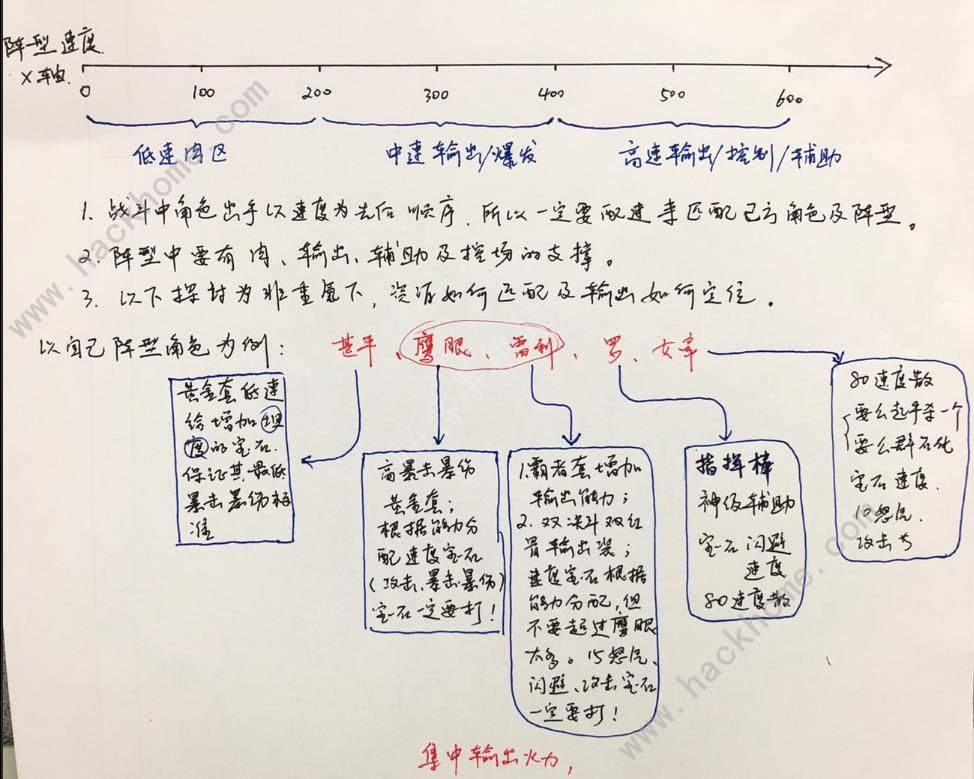 阵型速度
X轴
0 100 200 300 400 500 600
低速肉区 中速输出/爆发 高速输出/控制/辅助
1. 战斗中角色出手以速度为先后顺序，所以一定要配速来匹配己方角色及阵型。
2. 阵型中要有肉、输出、辅助及控场的支撑。
3. 以下探讨为非重氪下，资源如何匹配及输出如何定位。
以自己阵型角色为例：
甚平、鹰眼、雷利、罗、女帝
黄金套低速
给增加坦
度的宝石.
保证其最低
暴击暴伤标
准
高暴击暴伤
黄金套；
根据能力分
配速度宝石
(攻击、暴击暴伤)
宝石一定要打！
1.霸者套增加
输出能力；
2. 双决斗双红
骨输出装；
速度宝石根据
能力分配，但
不要超过鹰眼
太多。15怒气、
闪避、攻击宝石
一定要打！
指挥棒
神级辅助
宝石闪避
速度
80速度散
80速度散
要么起手杀一个
要么群石化
宝石速度.
10怒气.
攻击
集中输出火力，
www.hackhome.com
www.hackhome.com